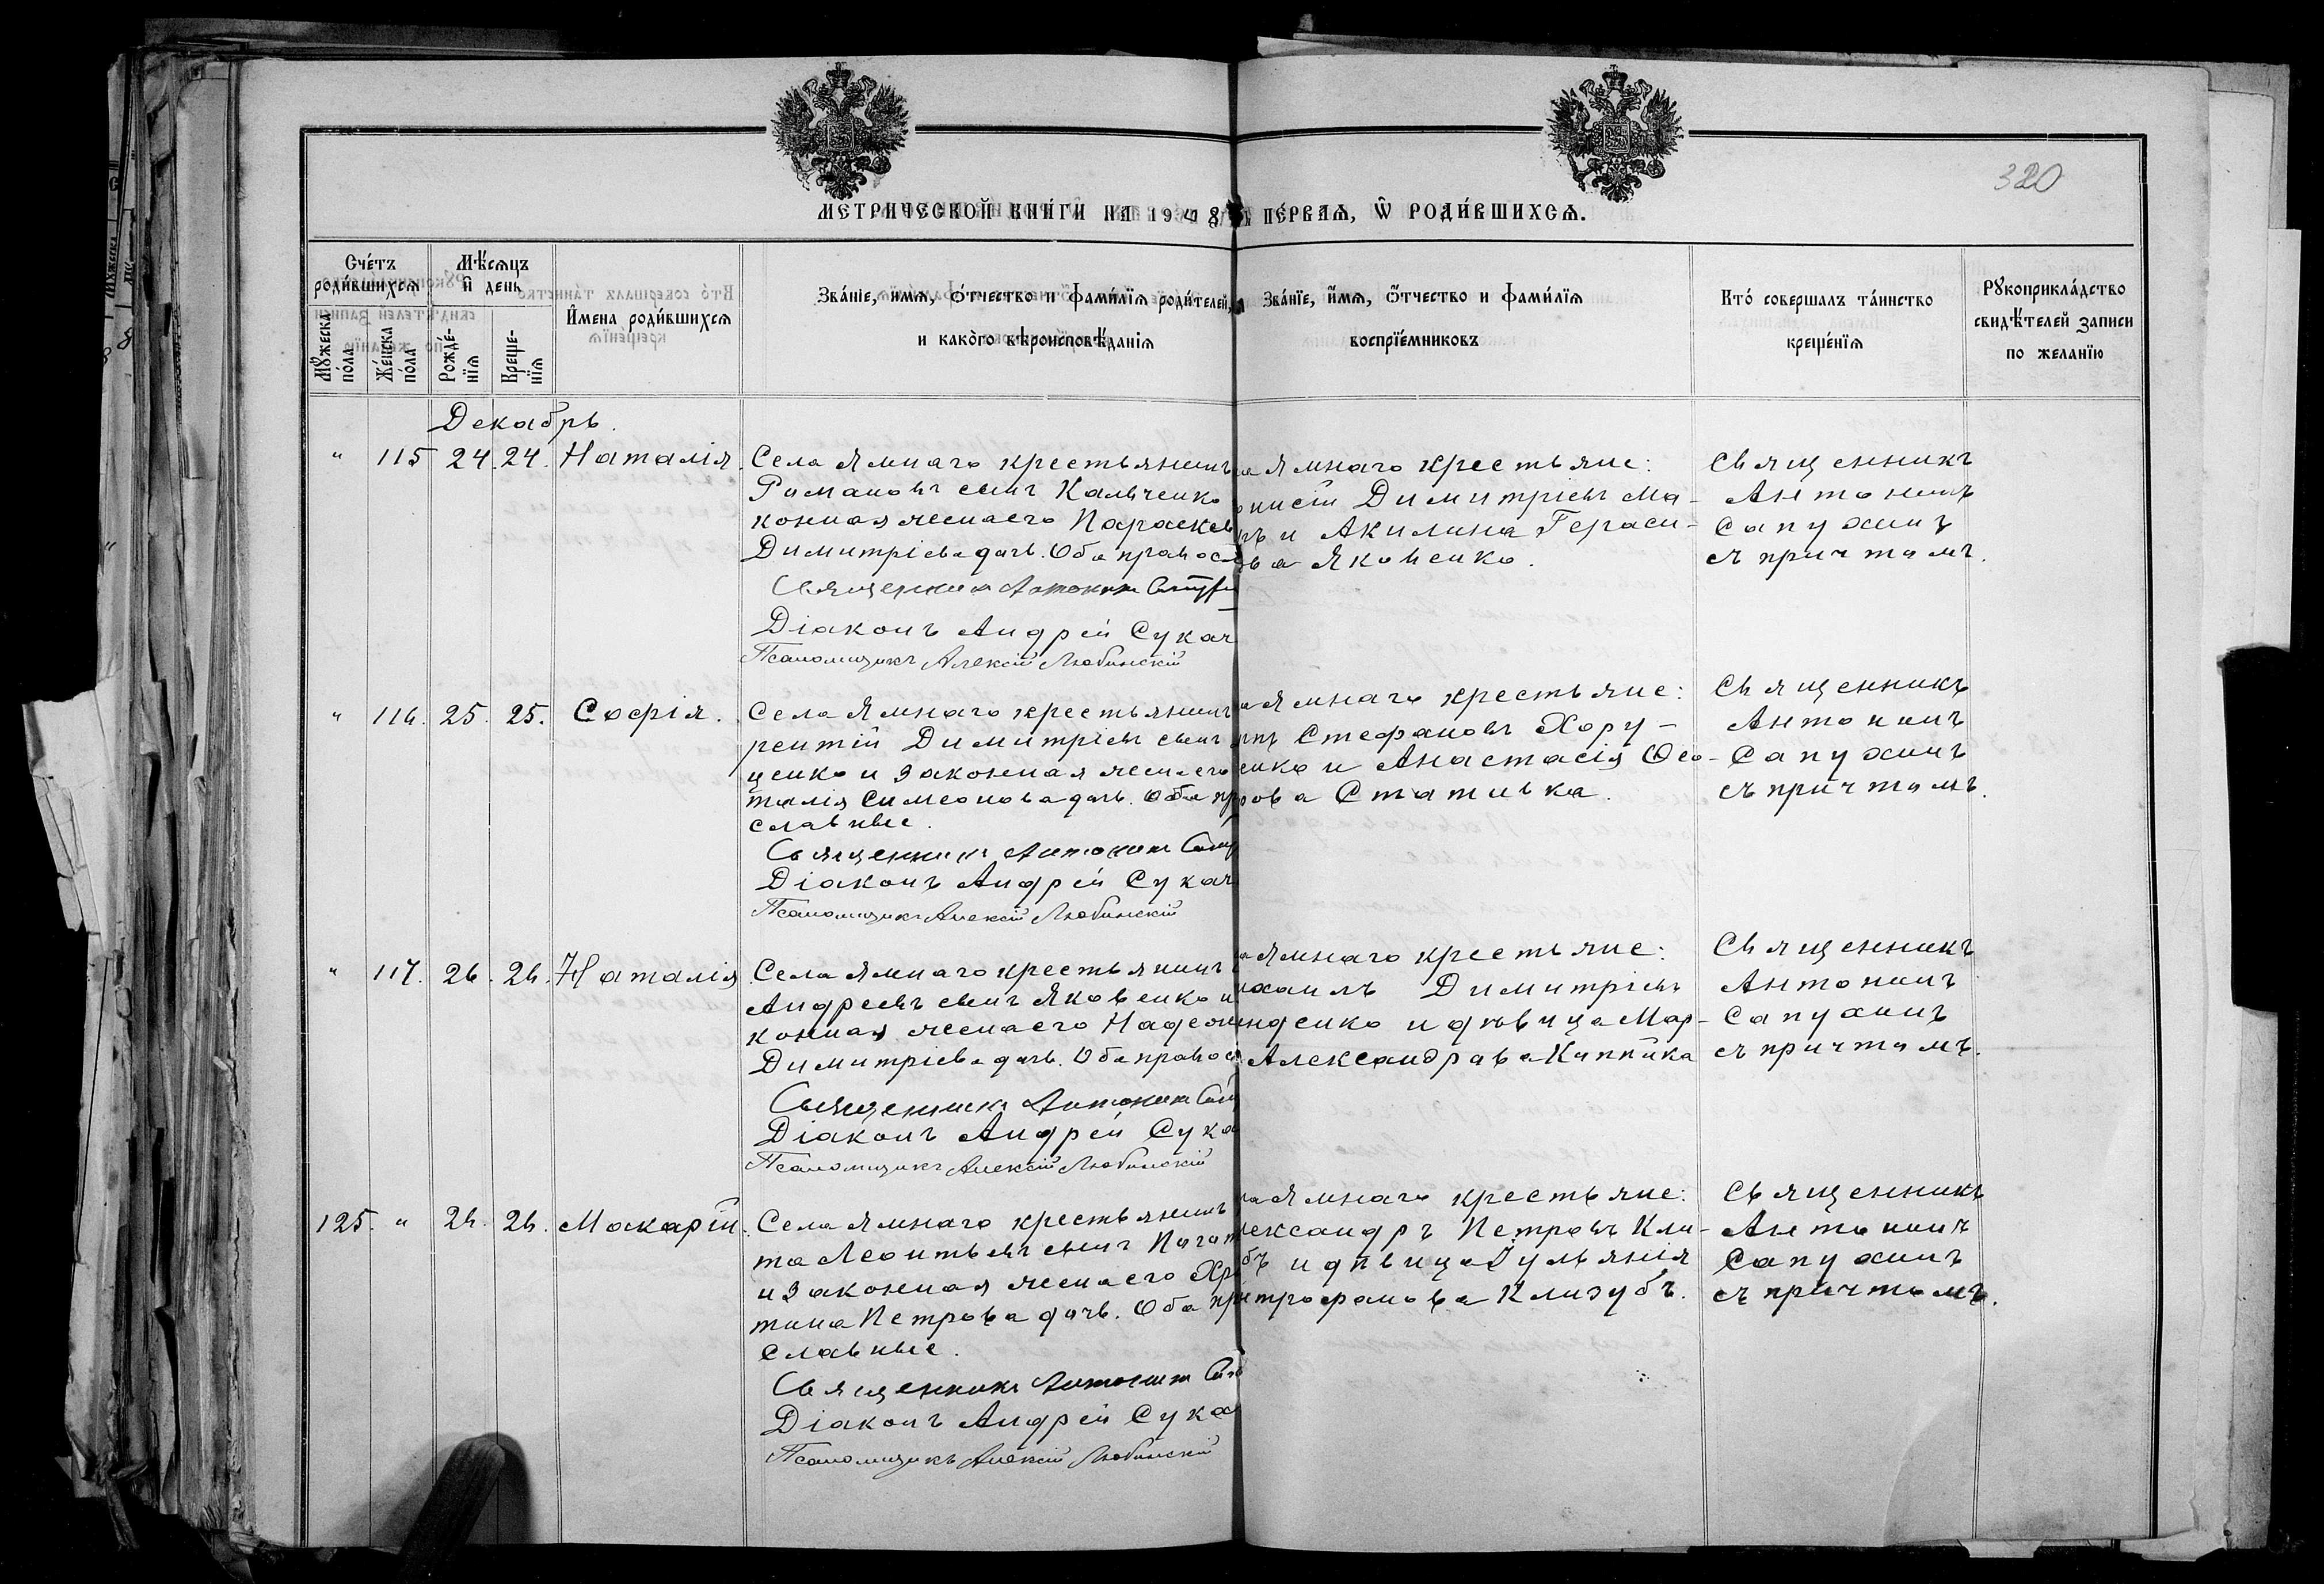 320
МЕТРИЧЕСКОЙ КНИГИ НА 1908 ПЕРВАЯ, Ѿ РОДИВШИХСЯ.
Счетъ родившихся
Мѣсяцъ и день
Имена родившихся
Званіе, имя, отчество и фамилія родителей,
и какого вѣроисповѣданія
Званіе, имя, отчество и фамилія
воспріемниковъ
Кто совершалъ таинство
крещенія
Рукоприкладство
свидѣтелей записи
по желанію
Мужеска пола
Женска пола
Рожденія
Крещенія
Декабрь.
" 115 24. 24. Наталія.
Села Ямнаго крестьянинъ
Романовъ сынъ Кальченко
конная жена его Параскев
Димитріева дочь. Оба правосл
Священникъ Антонин
Діаконъ Андрей Сукач
Псаломщикъ Алексій Любинскій
Ямнаго крестьяне:
Димитріевъ Ма-
ръ и Акилина Гераси-
ва Яковенко.
Священникъ
Антонинъ
Сапухинъ
съ причтомъ.
" 116. 25. 25. Софія.
Села Ямнаго крестьянинъ
рентій Димитріевъ сынъ
ценко и законная жена его
талія Симеонова дочь. Оба пр
славные.
Священникъ Антонин
Діаконъ Андрей Сукач
Псаломщикъ Алексій Любинскій
Ямнаго крестьяне:
Стефановъ Хору-
енко и Анастасія Ѳео-
рова Стативка.
Священникъ
Антонинъ
Сапухинъ
съ причтомъ.
" 117. 26. 26. Наталія
Села Ямнаго крестьянинъ
Андреевъ сынъ Яковенко и
конная жена его Надеж
Димитріева дочь. Оба правос
Священникъ Антонин
Діаконъ Андрей Сука
Псаломщикъ Алексій Любинскій
Ямнаго крестьяне:
ихаилъ Димитріевъ
нденко и дѣвица Мар-
Александрова Каппика
Священникъ
Антонинъ
Сапухинъ
съ причтомъ.
125. " 26. 26. Макарій.
Села Ямнаго крестьянинъ
та Леонтьевъ сынъ
и законная жена его Хри
тина Петрова дочь. Оба пр
славные.
Священникъ Антонин
Діаконъ Андрей Сука
Псаломщикъ Алексій Любинскій
Ямнаго крестьяне:
лександръ Петровъ Кли-
бъ и дѣвица Іульянія
трофановаКлизубъ.
Священникъ
Антонинъ
Сапухинъ
съ причтомъ.